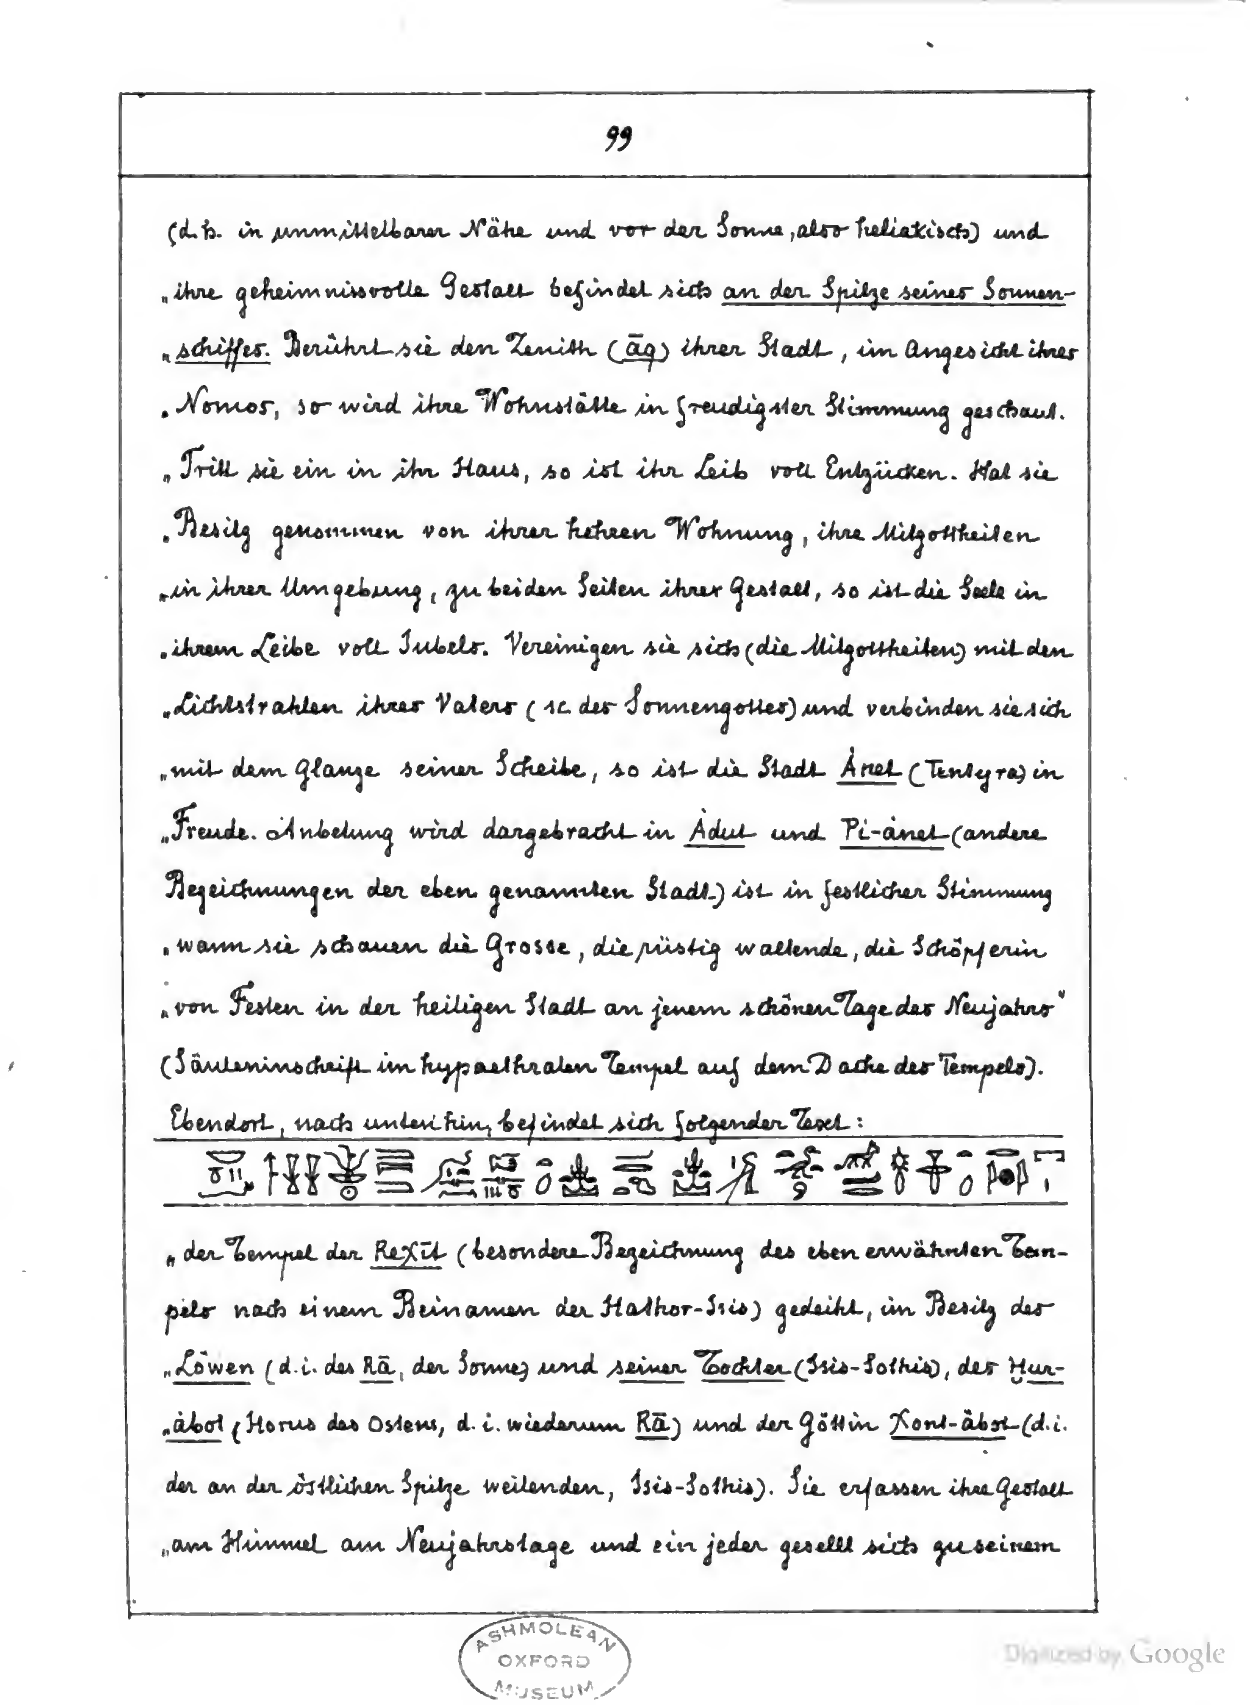 99
(d.h. in unmittelbarer Nähe und vor der Sonne, also heliakisch) und
„ihre geheimnissvolle Gestalt befindet sich an der Spitze seines Sonnen-
„schiffes. Berührt sie den Zenith (āq) ihrer Stadt, im Angesicht ihres
„Nomos, so wird ihre Wohnstätte in freudigster Stimmung geschaut.
„Tritt sie ein in ihr Haus, so ist ihr Leib voll Entzücken. Hat sie
„Besitz genommen von ihrer hehren Wohnung, ihre Mitgottheiten
„in ihrer Umgebung, zu beiden Seiten ihrer Gestalt, so ist die Seele in
„ihrem Leibe voll Jubels. Vereinigen sie sich (die Mitgottheiten) mit den
„Lichtstrahlen ihres Vaters (sc. des Sonnengottes) und verbinden sie sich
„mit dem Glanze seiner Scheibe, so ist die Stadt Ȧnet (Tentyra) in
„Freude. Anbetung wird dargebracht in Ȧdut und Pi-ȧnet (andere
Bezeichnungen der eben genannten Stadt) ist in festlicher Stimmung
„wann sie schauen die Grosse, die rüstig wallende, die Schöpferin
„von Festen in der heiligen Stadt an jenem schönen Tage des Neujahrs"
(Säuleninschrift im hypaethralen Tempel auf dem Dache des Tempels).
Ebendort, nach unten hin, befindet sich folgender Text:
„der Tempel der Reχīt (besondere Bezeichnung des eben erwähnten Tem-
pels nach einem Beinamen der Hathor-Isis) gedeiht, im Besitz des
„Löwen (d.i. des Rā, der Sonne) und seiner Tochter (Isis-Sothis), des Ḥur-
„ȧbot (Horus des Ostens, d.i. wiederum Rā) und der Göttin Χont-ȧbot (d.i.
der an der östlichen Spitze weilenden, Isis-Sothis). Sie erfassen ihre Gestalt
„am Himmel am Neujahrstage und ein jeder gesellt sich zu seinem
ASHMOLEAN
OXFORD
MUSEUM
Digitized by Google